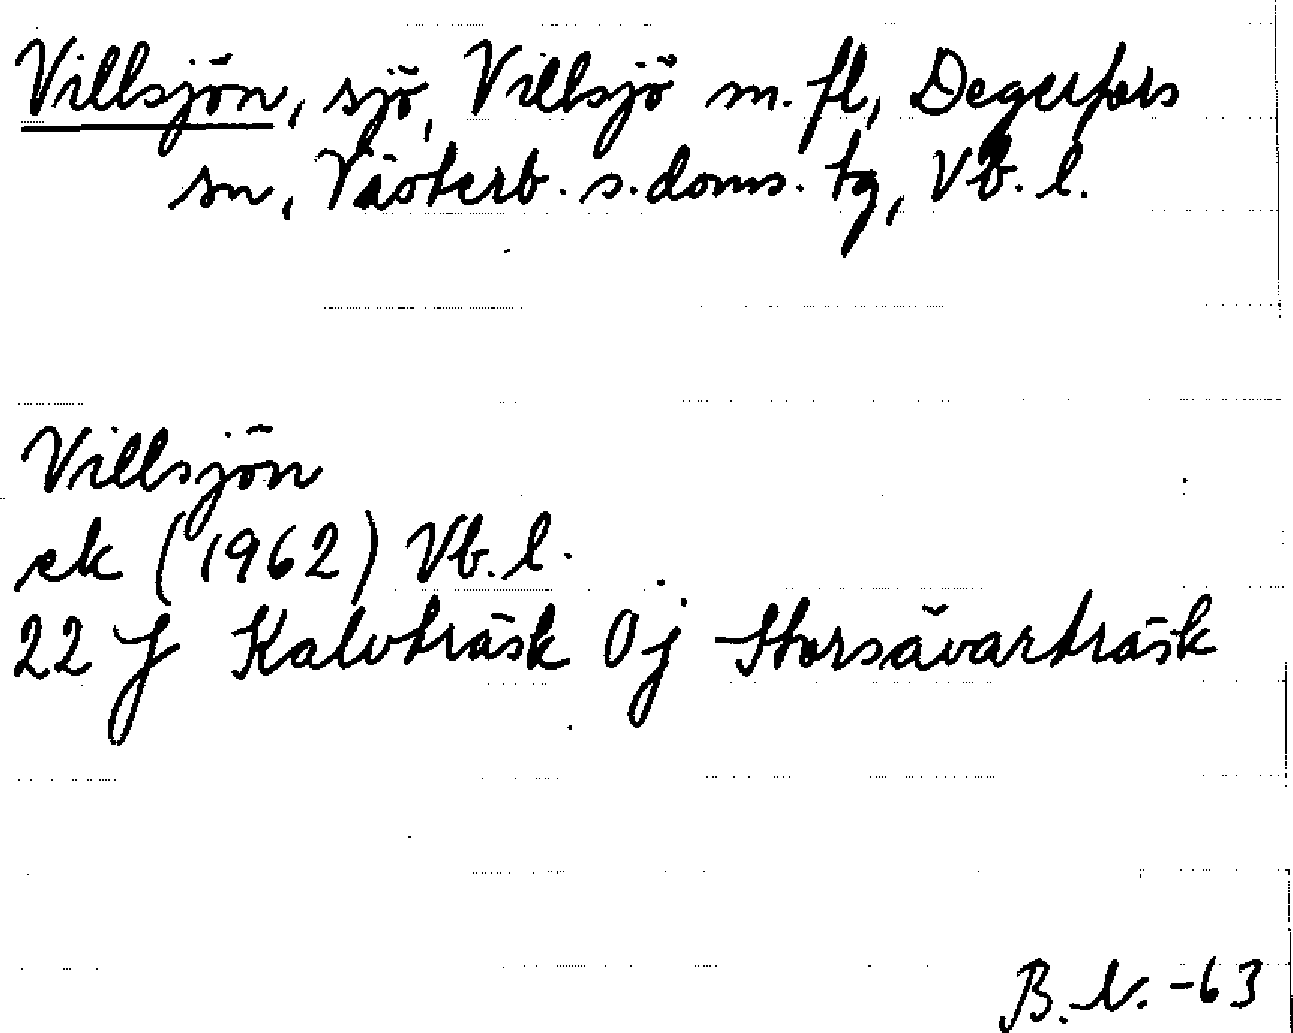 Villsjön, sjö, Villsjö m. fl, Degerfors
sn, Västerb. s. doms. tg, Vb. l.
Villsjön
ek (1962) Vb. l.
22 J Kalvträsk 0 j Storsävarträsk
B. N. -63